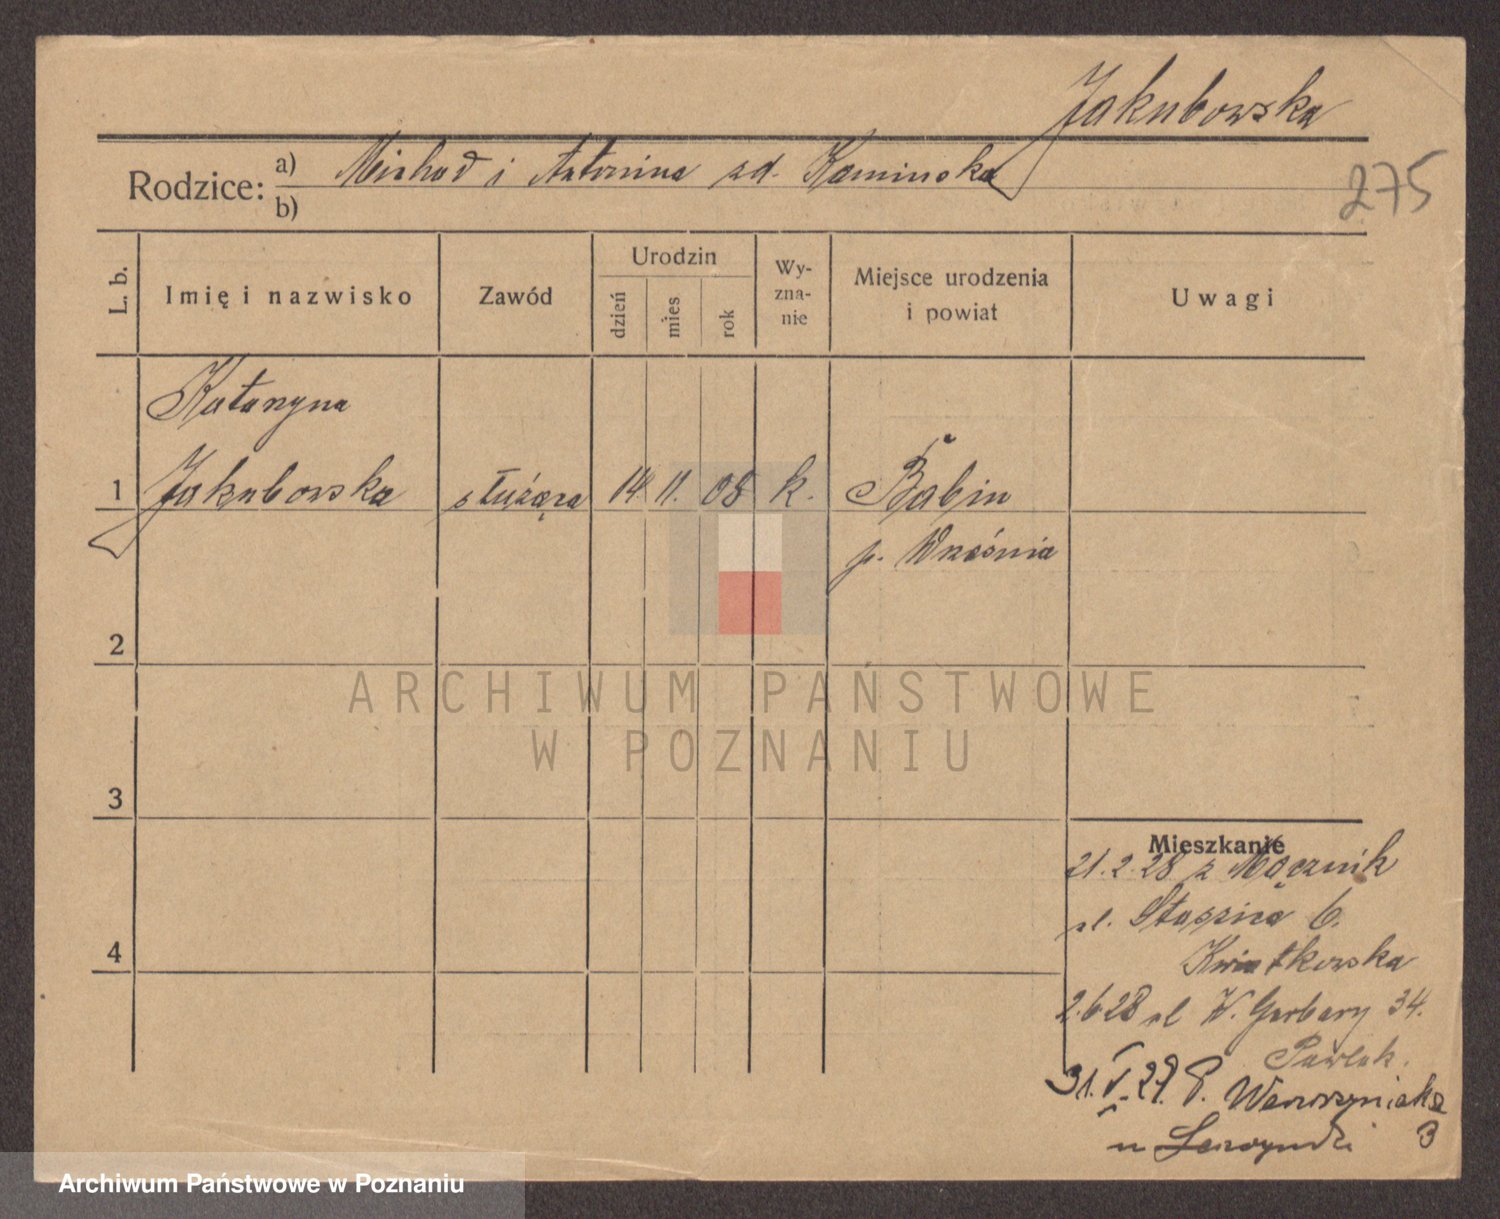 Jakubowska
Rodzice: a) Michał i Antonina zd. Kaminska
b)
275
L. b.
Imię i nazwisko
Zawód
Urodzin
dzień
mies
rok
Wy-
zna-
nie
Miejsce urodzenia
i powiat
Uwagi
Katarzyna
1 Jakubowska służąca 14 11. 08 k. Babin
p. Września
2
3
4
Mieszkanie
21.2.28 z Mącznik
ul. Staszica 6.
Kwiatkowska
2.6 28 ul W. Garbary 34.
Pawlak.
31. V. 29. P. Wawrzyniaka
u 3
ARCHIWUM PAŃSTWOWE
W POZNANIU
Archiwum Państwowe w Poznaniu